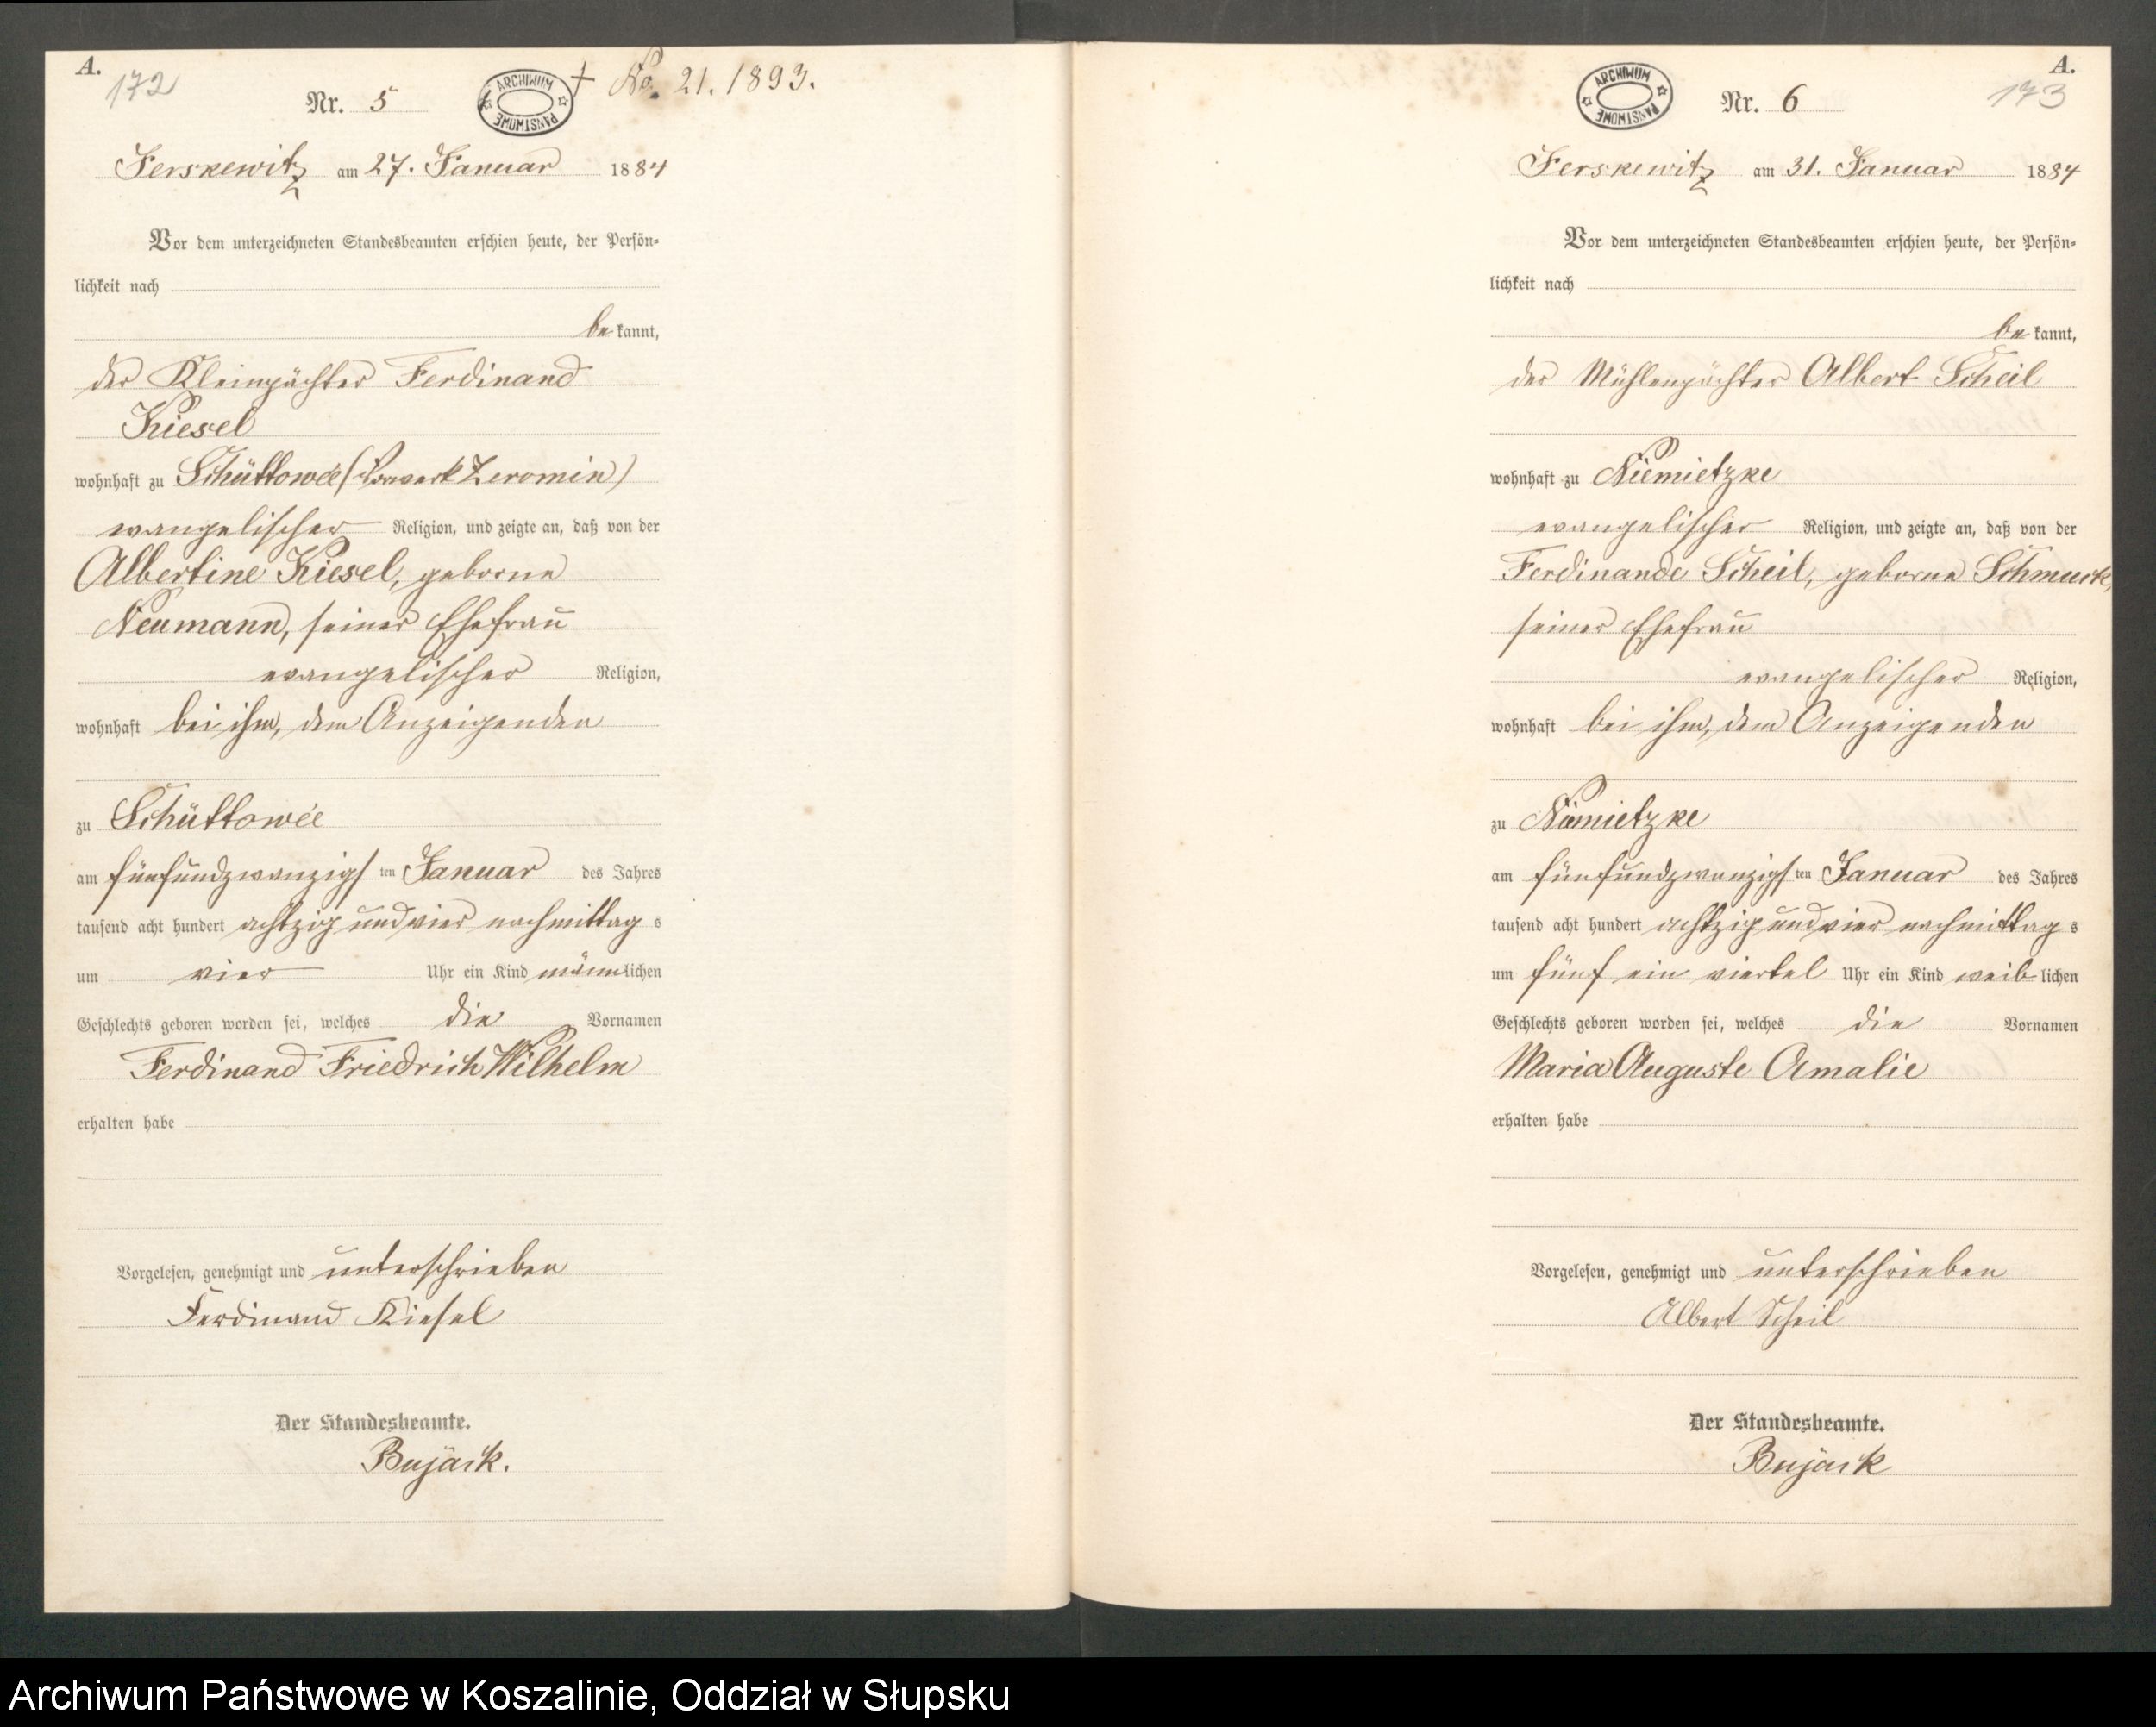 A.
172
Nr. 5
ARCHIWUM PAŃSTWOWE
† No. 21. 1893.
Jerskewitz am 27. Januar 1884
Vor dem unterzeichneten Standesbeamten erschien heute, der Persön-
lichkeit nach
be kannt,
der Kleinpächter Ferdinand
Kiesel
wohnhaft zu Schüttowée (Vorwerk Zeromin)
evangelischer Religion, und zeigte an, daß von der
Albertine Kiesel, geborne
Neumann, seiner Ehefrau
evangelischer Religion,
wohnhaft bei ihm, dem Anzeigenden
zu Schüttowée
am fünfundzwanzigsten Januar des Jahres
tausend acht hundert achtzig und vier nachmittags
um vier Uhr ein Kind männlichen
Geschlechts geboren worden sei, welches die Vornamen
Ferdinand Friedrich Wilhelm
erhalten habe
Vorgelesen, genehmigt und unterschrieben
Ferdinand Kiesel
Der Standesbeamte.
Bujäck.
A.
173
ARCHIWUM PAŃSTWOWE
Nr. 6
Jerskewitz am 31. Januar 1884
Vor dem unterzeichneten Standesbeamten erschien heute, der Persön-
lichkeit nach
be kannt,
der Mühlenpächter Albert Scheil
wohnhaft zu Niemietzke
evangelischer Religion, und zeigte an, daß von der
Ferdinande Scheil, geborne Schmuck,
seiner Ehefrau
evangelischer Religion,
wohnhaft bei ihm, dem Anzeigenden
zu Niemietzke
am fünfundzwanzigsten Januar des Jahres
tausend acht hundert achtzig und vier nachmittags
um fünf ein viertel Uhr ein Kind weiblichen
Geschlechts geboren worden sei, welches die Vornamen
Maria Auguste Amalie
erhalten habe
Vorgelesen, genehmigt und unterschrieben
Albert Scheil
Der Standesbeamte.
Bujäck
Archiwum Państwowe w Koszalinie, Oddział w Słupsku